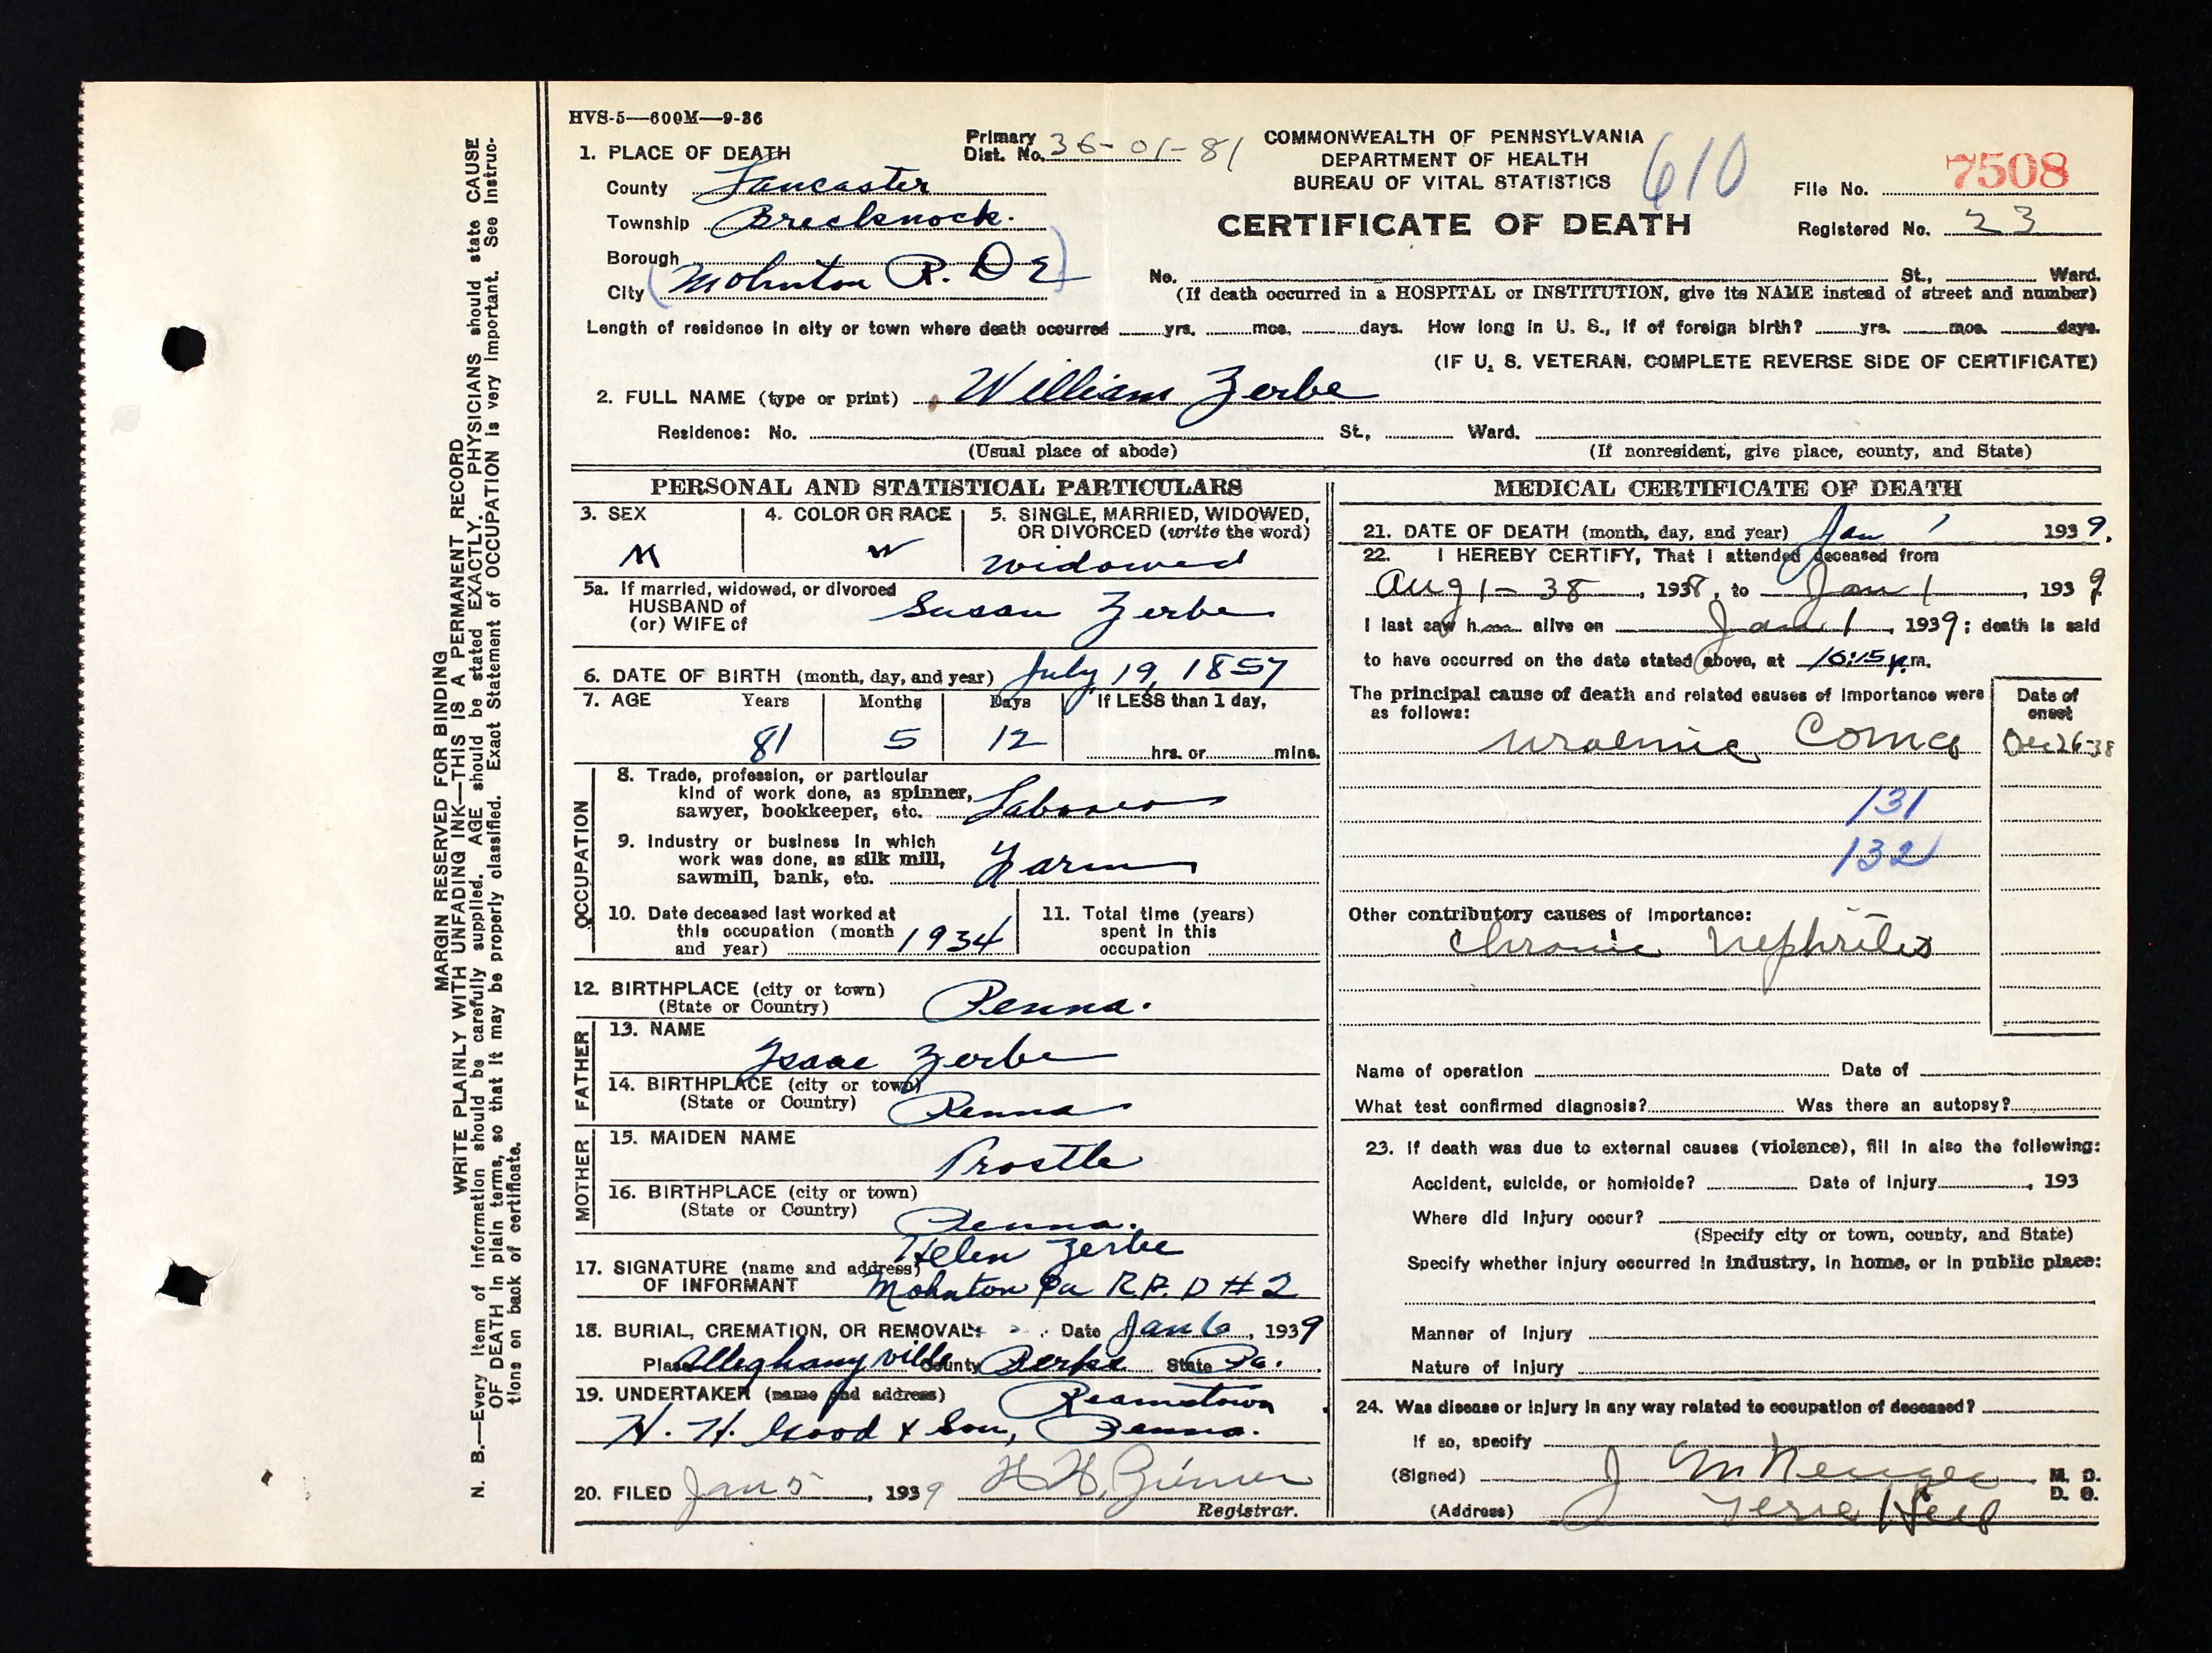 HVS-5—600M—9-36
Primary Dist. No. 36-01-81
COMMONWEALTH OF PENNSYLVANIA
DEPARTMENT OF HEALTH
BUREAU OF VITAL STATISTICS
610
File No. 7508
Registered No. 23
CERTIFICATE OF DEATH
1. PLACE OF DEATH
County Lancaster
Township Brecknock.
Borough
City (Mohnton R. D 2)
No. St., Ward.
(If death occurred in a HOSPITAL or INSTITUTION, give its NAME instead of street and number)
Length of residence in city or town where death occurred yrs. mos. days. How long in U. S., if of foreign birth? yrs. mos. days.
(IF U. S. VETERAN, COMPLETE REVERSE SIDE OF CERTIFICATE)
2. FULL NAME (type or print) William Zerbe
Residence: No. St., Ward.
(Usual place of abode) (If nonresident, give place, county, and State)
PERSONAL AND STATISTICAL PARTICULARS
3. SEX
M
4. COLOR OR RACE
W
5. SINGLE, MARRIED, WIDOWED,
OR DIVORCED (write the word)
Widowed
5a. If married, widowed, or divorced
HUSBAND of
(or) WIFE of
Susan Zerbe
6. DATE OF BIRTH (month, day, and year) July 19, 1857
7. AGE Years Months Days If LESS than 1 day,
81 5 12 hrs. or mins.
OCCUPATION
8. Trade, profession, or particular
kind of work done, as spinner,
sawyer, bookkeeper, etc. Laborer
9. Industry or business in which
work was done, as silk mill,
sawmill, bank, etc. Farm
10. Date deceased last worked at
this occupation (month
and year) 1934
11. Total time (years)
spent in this
occupation
12. BIRTHPLACE (city or town)
(State or Country) Penna.
FATHER
13. NAME
Isaac Zerbe
14. BIRTHPLACE (city or town)
(State or Country) Penna
MOTHER
15. MAIDEN NAME
Prostle
16. BIRTHPLACE (city or town)
(State or Country)
Penna.
Helen Zerbe
17. SIGNATURE (name and address)
OF INFORMANT Mohnton Pa R.F.D #2
18. BURIAL, CREMATION, OR REMOVAL: Date Jan 6, 1939
Place Alleghanyville County Berks State Pa.
19. UNDERTAKER (name and address) Reamstown
H. H. Good & Son, Penna.
20. FILED Jan 5, 1939 H H,
Registrar.
MEDICAL CERTIFICATE OF DEATH
21. DATE OF DEATH (month, day, and year) Jan 1 1939.
22. I HEREBY CERTIFY, That I attended deceased from
Aug 1 - 38, 1938, to Jan 1, 1939
I last saw him alive on Jan 1, 1939; death is said
to have occurred on the date stated above, at 10:15 p.m.
The principal cause of death and related causes of importance were
as follows:
Date of
onset
Uraemic Coma Dec 26-38
131
132
Other contributory causes of importance:
Chronic Nephritis
Name of operation Date of
What test confirmed diagnosis? Was there an autopsy?
23. If death was due to external causes (violence), fill in also the following:
Accident, suicide, or homicide? Date of injury , 193
Where did injury occur?
(Specify city or town, county, and State)
Specify whether injury occurred in industry, in home, or in public place:
Manner of injury
Nature of injury
24. Was disease or injury in any way related to occupation of deceased?
If so, specify
(Signed) J M M. D.
D. O.
(Address) Terre Hill
MARGIN RESERVED FOR BINDING
WRITE PLAINLY WITH UNFADING INK—THIS IS A PERMANENT RECORD
N. B.—Every item of information should be carefully supplied. AGE should be stated EXACTLY. PHYSICIANS should state CAUSE
OF DEATH in plain terms, so that it may be properly classified. Exact Statement of OCCUPATION is very important. See Instruc-
tions on back of certificate.